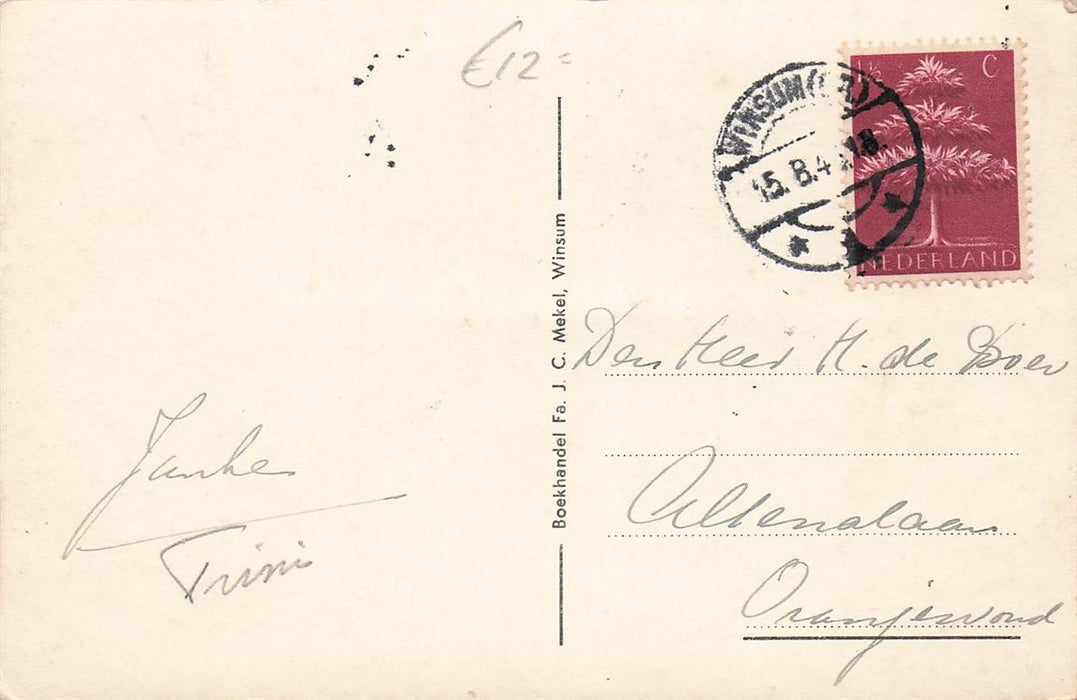 €12=
1½ C
WINSUM (GR.)
15.8.4 .18.
NEDERLAND
Boekhandel Fa. J. C. Mekel, Winsum
Den Heer H. de Boer
Altenalaan
Oranjewoud
Janke
Trini